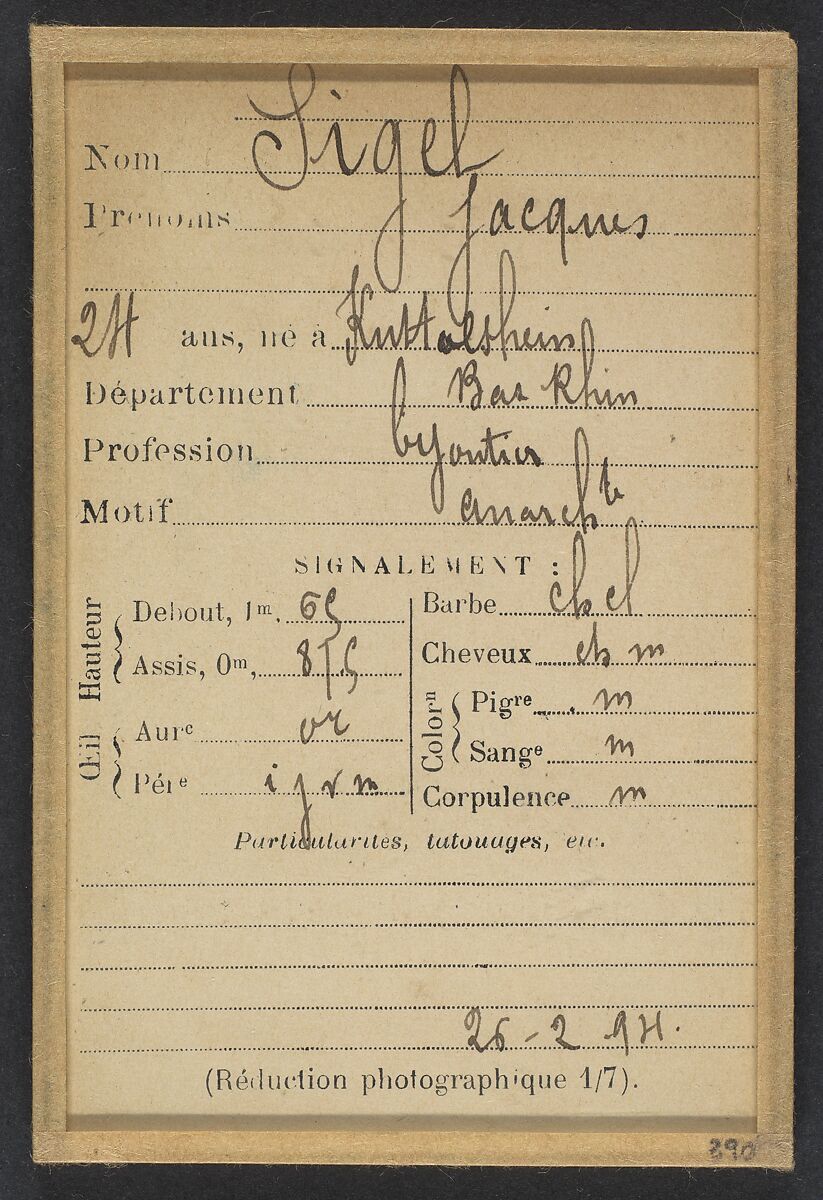 Nom Sigel
Prénoms Jacques
24 ans, né à Kuttolsheim
Département Bas Rhin
Profession bijoutier
Motif anarchte
SIGNALEMENT :
Hauteur
Debout, 1m, 65
Assis, 0m, 875
Œil
Aurᵉ or
Périᵉ i g v m
Barbe ch cl
Cheveux ch m
Colorⁿ
Pigʳᵉ m
Sangᵉ m
Corpulence m
Particularités, tatouages, etc.
26 - 2 94.
(Réduction photographique 1/7).
290